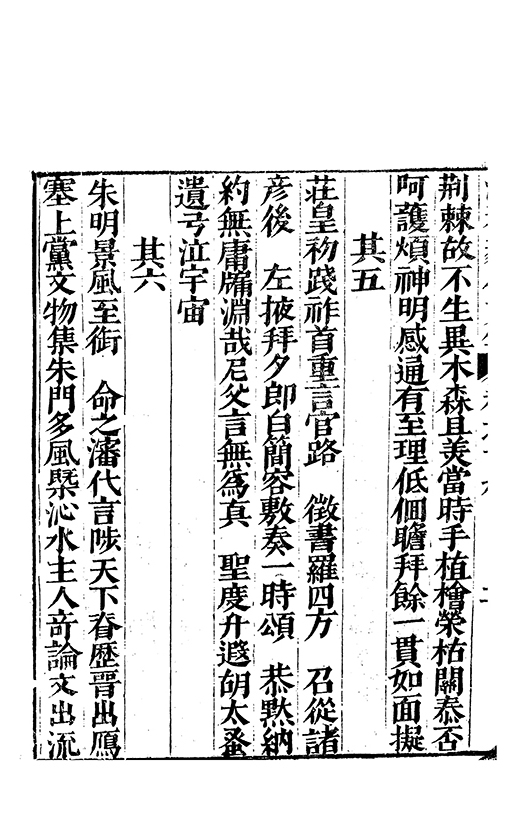 荆棘故不生異木森且美當時手植檜榮枯關泰否
呵護煩神明感通有至理低佪瞻拜餘一貫如面擬
其五
莊皇初踐祚首重言官路　徵書羅四方　召從諸
彥後　左掖拜夕郎白簡容敷奏一時頌　恭默納
約無庸牖淵哉尼父言無爲真　聖度升遐胡太蚤
遺弓泣宇宙
其六
朱明景風至銜　命之瀋代言陟天下脊歷晋出鴈
塞上黨文物集朱門多風槩沁水主人奇論文出流